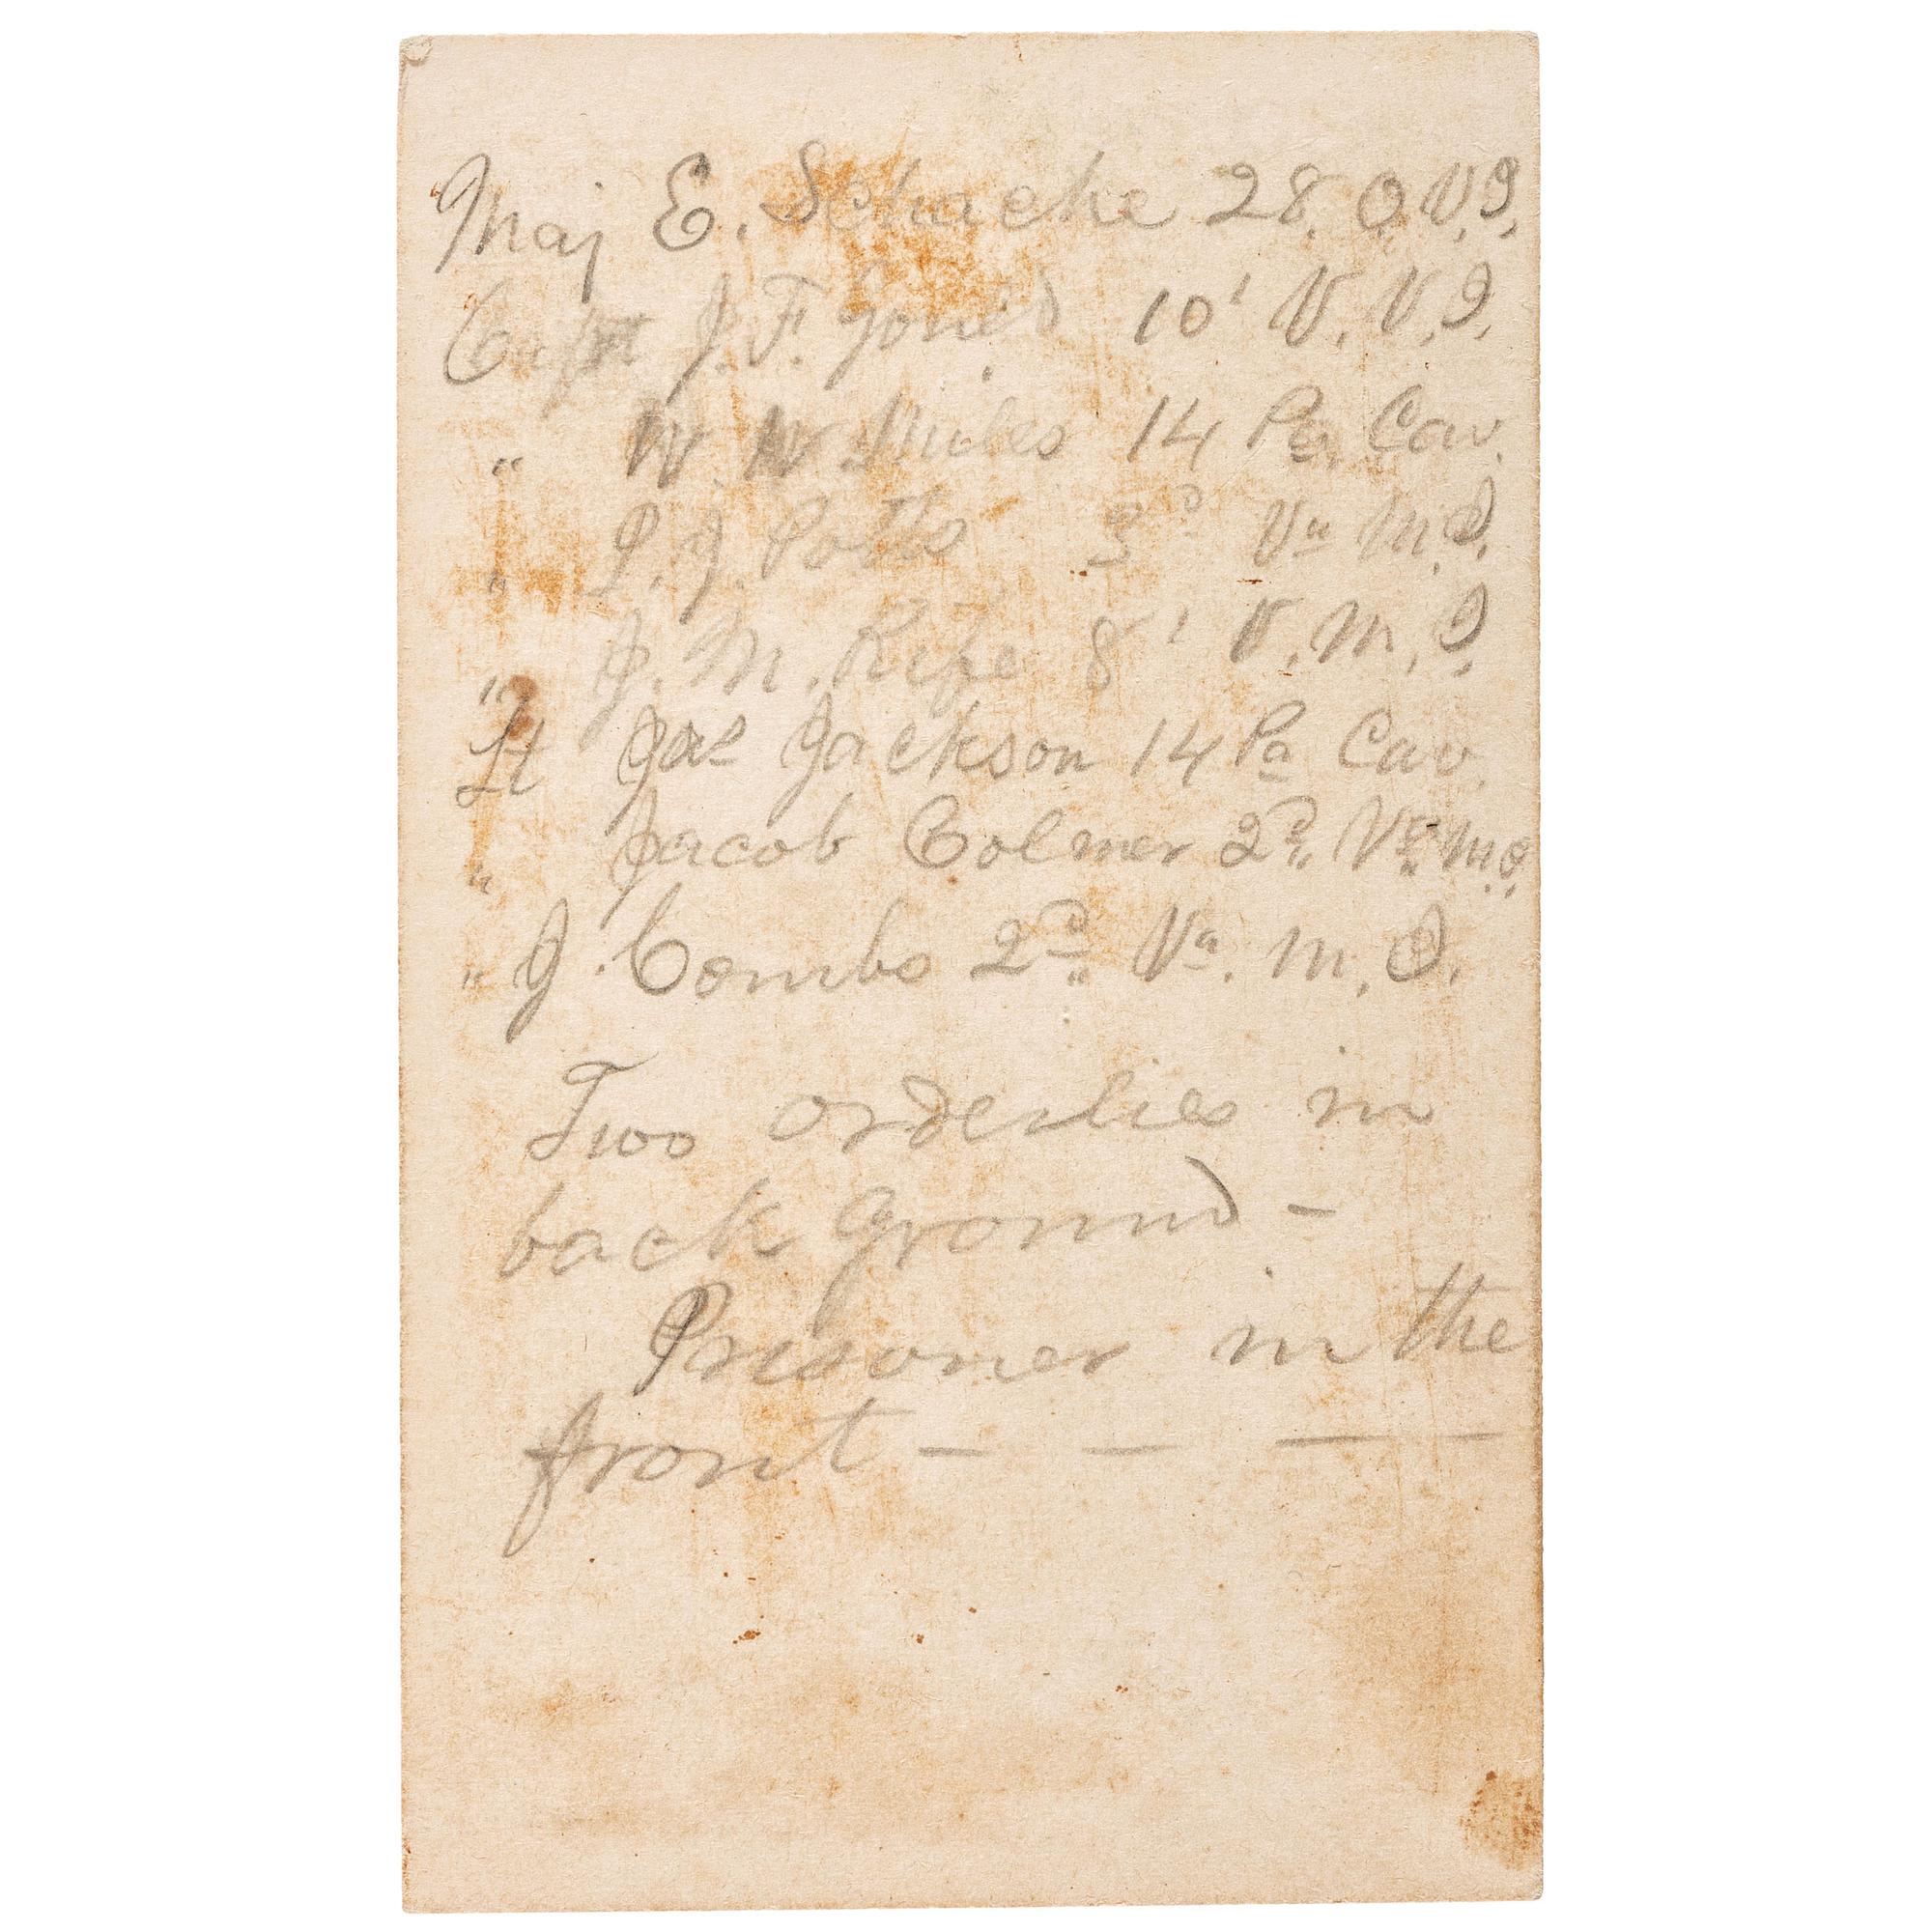 Maj E. Schache 28. O. V. I.
Capt J. F. Jones 10' V. V. I.
" W. W. Miles 14 Pa. Cav.
" P. J. Potts 3d Va M. I.
" J. M. Rife 8' V. M. I.
Lt Jas Jackson 14 Pa Cav.
" Jacob Colmer 2d Va M. I.
" J. Combs 2d Va. M. I.
Two orderlies in
back Ground -
Prisoner in the
front - - -